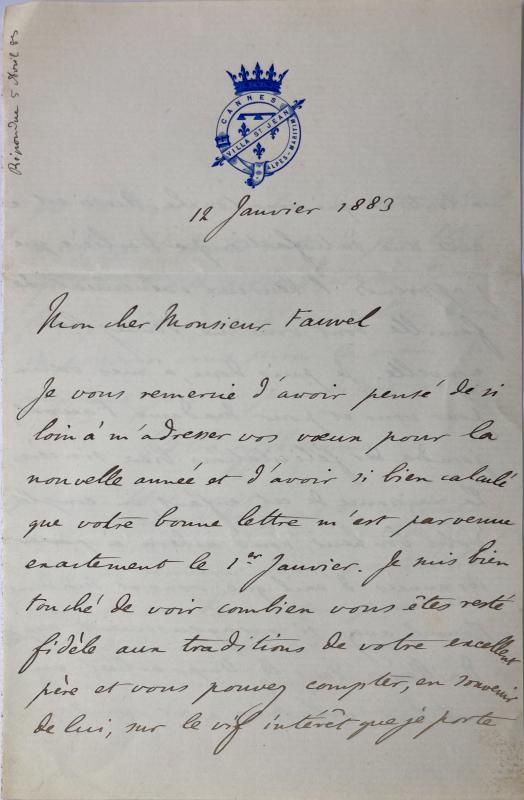 Répondue 5 Avril 83
CANNES
VILLA St JEAN
ALPES-MARITIMES
12 Janvier 1883
Mon cher Monsieur Fauvel
Je vous remercie d'avoir pensé de si
loin à m'adresser vos vœux pour la
nouvelle année et d'avoir si bien calculé
que votre bonne lettre m'est parvenue
exactement le 1er Janvier. Je suis bien
touché de voir combien vous êtes resté
fidèle aux traditions de votre excellent
père et vous pouvez compter, en souvenir
de lui, sur le vif intérêt que je porte